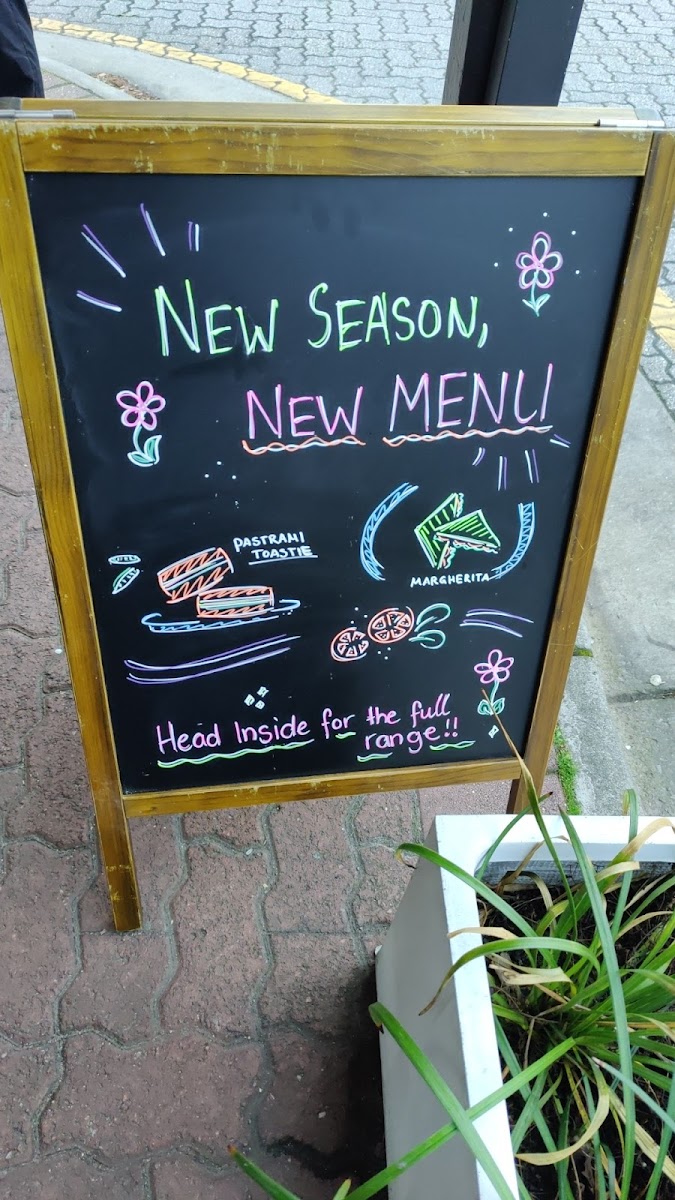 NEW SEASON,
NEW MENU
PASTRAMI
TOASTIE
MARGHERITA
Head Inside for the full
range!!